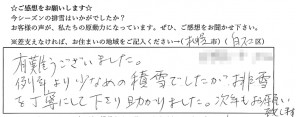 ☆ご感想をお願いします☆
今シーズンの排雪はいかがでしたか?
お客様の声が、私たちの原動力になっています。ぜひ、ご感想をお聞かせ下さい。
※差支えなければ、お住まいの地域をご記入ください→(札幌市)(白石区)
有難うございました。
例年より少なめの積雪でしたが 排雪
を丁寧にして下さり助かりました。次年もお願い
致します